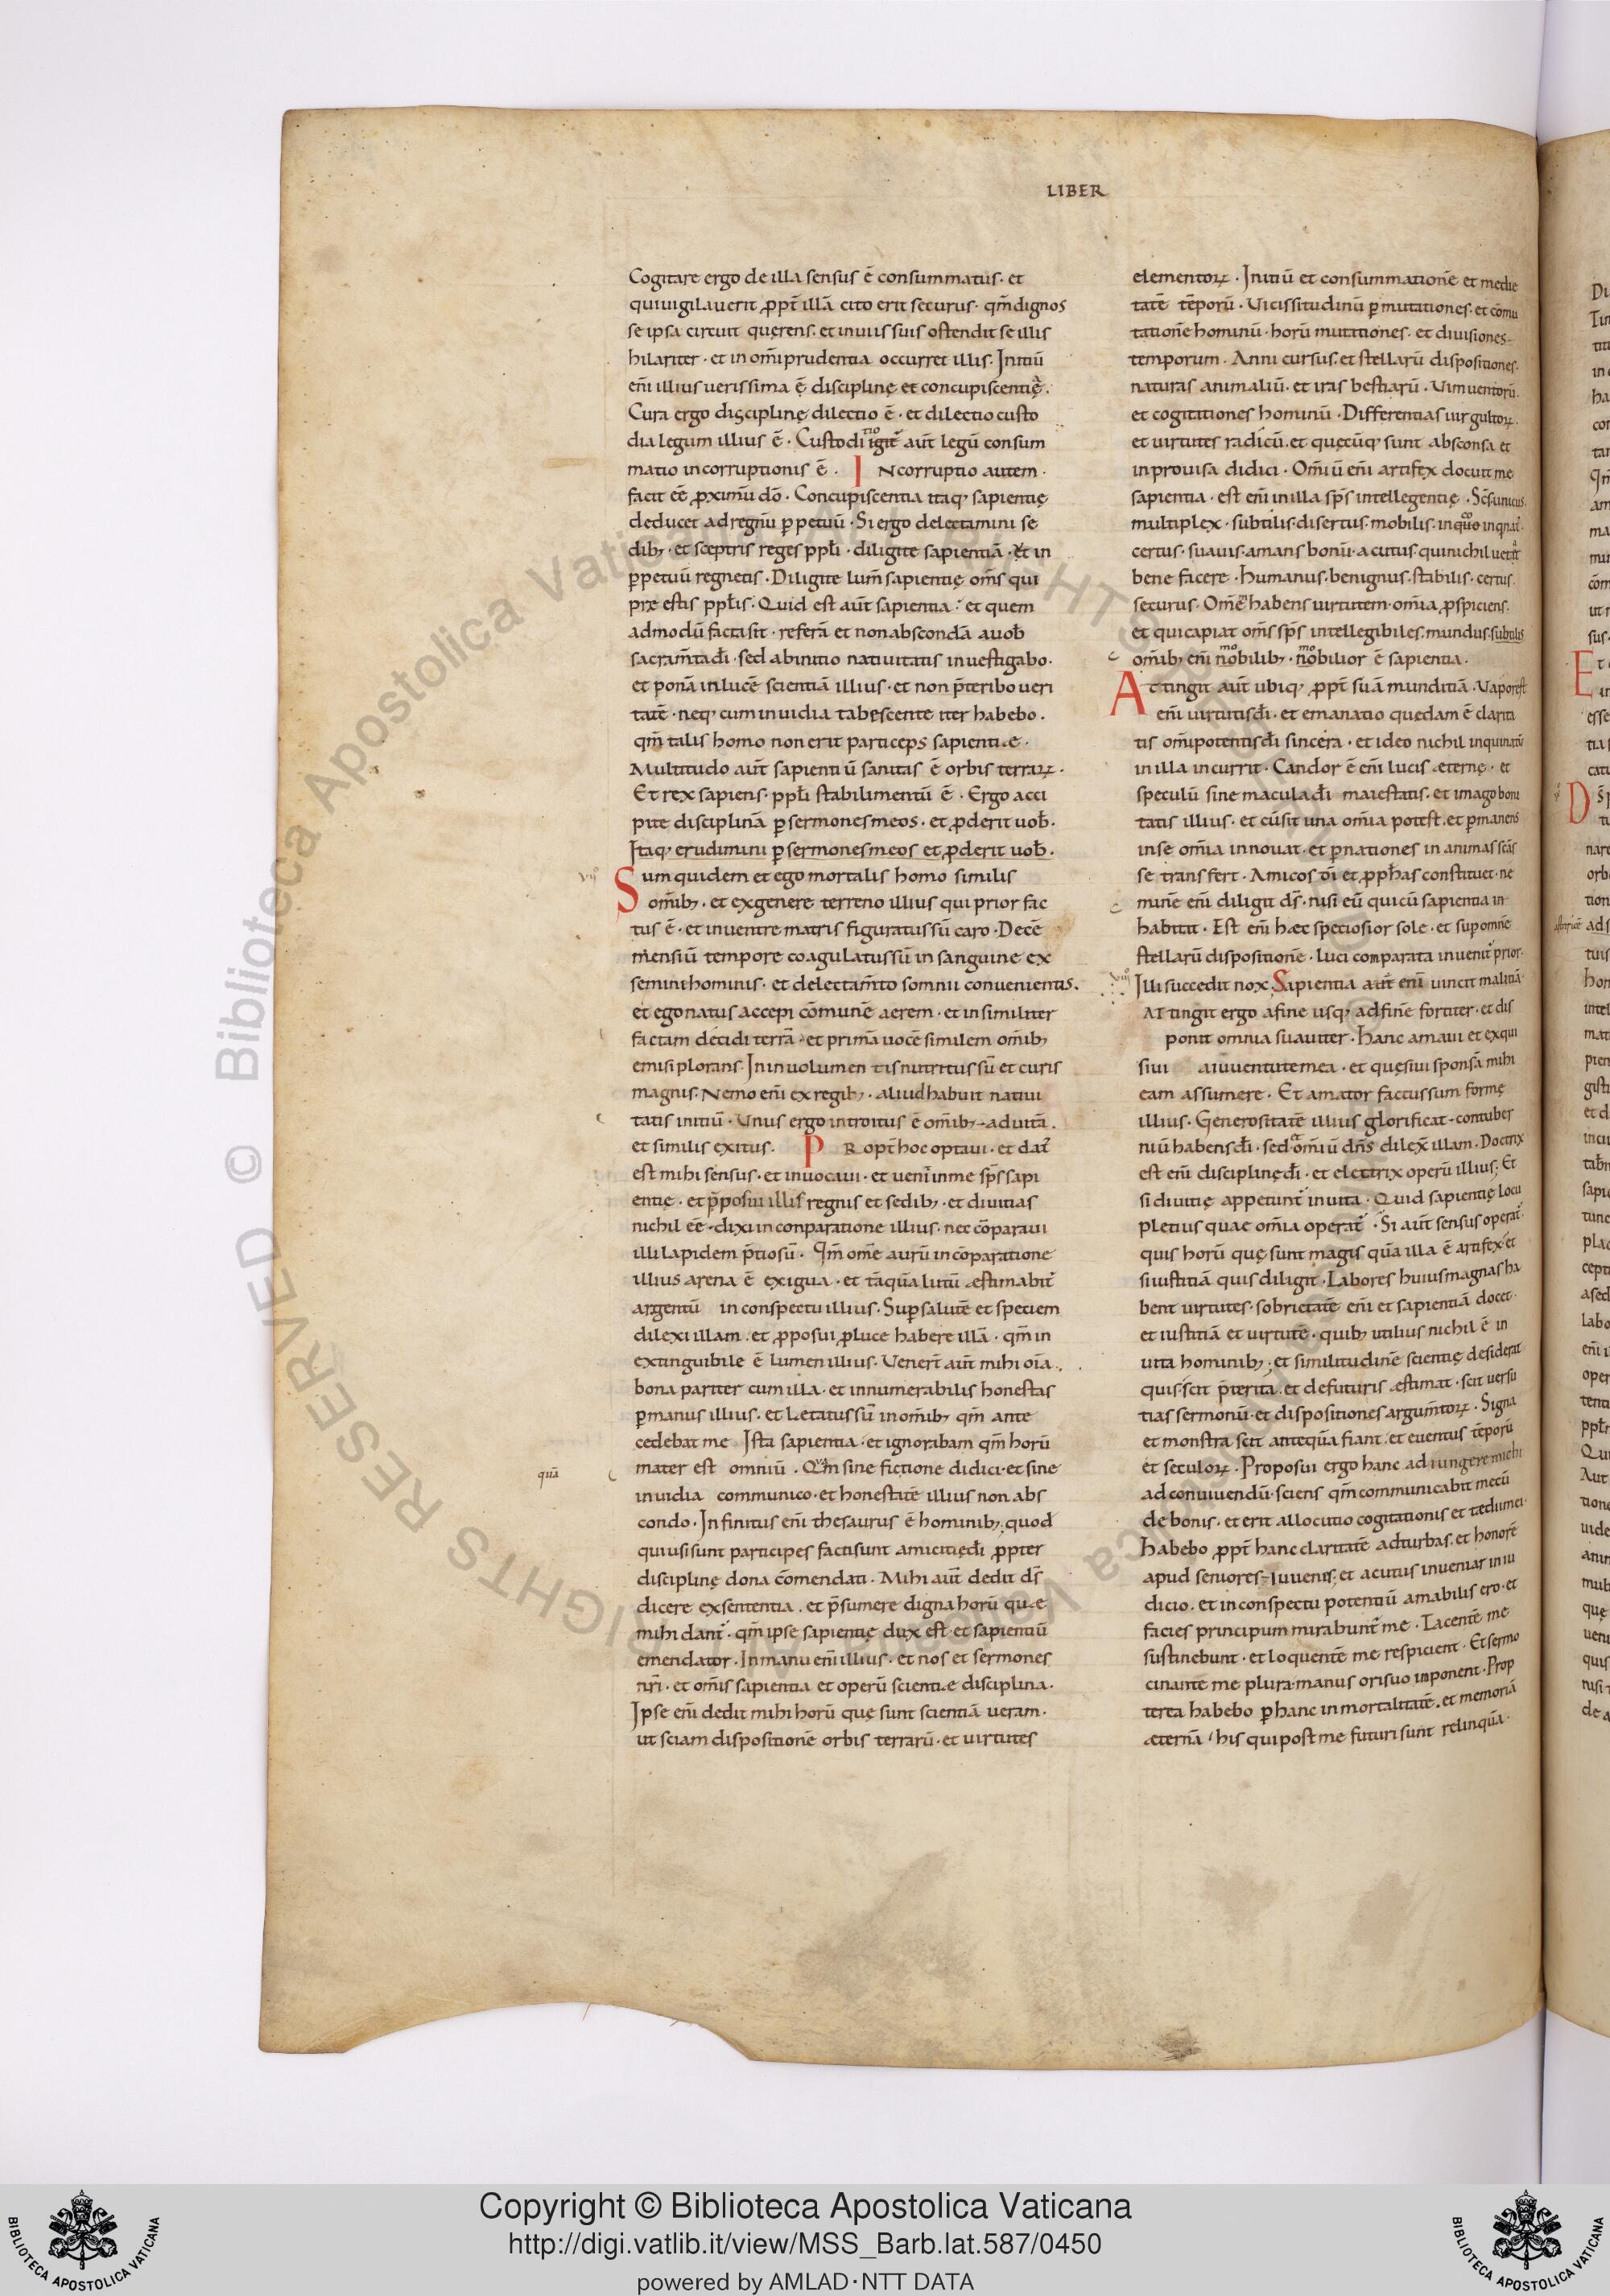 LIBER
Cogitare ergo de illa sensus ē consummatus · et
qui uigilauerit ꝓpt̄ illā cito erit securus · qm̄ dignos
se ipsa circuit querens · et in uiis suis ostendit se illis
hilariter · et in om̄i prudentia occurret illis · Initiū
eni͞ illius uerissima ē disciplinę et concupiscentię ·
Cura ergo disciplinę dilectio ē · et dilectio custo
dia legum illius ē · Custodi igit̄ aut̄ legū consum
matio incorruptionis ē · INcorruptio autem ·
facit eē ꝓximū dō · Concupiscentia itaq; sapientię
deducet ad regnū ꝑpetuū · Si ergo delectamini se
dib; · et sceptris reges ppl̄i · diligite sapientiā · et in
ꝑpetuū regnetis · Diligite lum̄ sapientię om̄s qui
pre estis ppl̄is · Quid est aut̄ sapientia · et quem
admodū facta sit · referā et non abscondā a uob̄
sacram̄ta dī · sed ab initio natiuitatis inuestigabo ·
et ponā in lucē scientiā illius · et non p̄teribo ueri
tatē · neq; cum inuidia tabescente iter habebo ·
qm̄ talis homo non erit particeps sapientiae ·
Multitudo aut̄ sapientiū sanitas ē orbis terrarꝝ ·
Et rex sapiens · ppl̄i stabilimentū ē · Ergo acci
pite disciplinā ꝑ sermones meos · et ꝓderit uob̄ ·
Itaq; erudimini ꝑ sermones meos et ꝓderit uob̄ ·
Sum quidem et ego mortalis homo similis
om̄ib; · et ex genere terreno illius qui prior fac
tus ē · et in uentre matris figuratus sū caro · Decē
mensiū tempore coagulatus sū in sanguine ex
semine hominis · et delectam̄to somnii conuenientis ·
et ego natus accepi cōmunē aerem · et in similiter
factam decidi terrā · et primā uocē similem om̄ib;
emisi plorans · In inuolumentis nutritus sū et curis
magnis · Nemo eni͞ ex regib; · aliud habuit natiui
tatis initiū · Unus ergo introitus ē om̄ib; ad uitā ·
et similis exitus · PRopt̄ hoc optaui · et dat̄
est mihi sensus · et inuocaui · et uenit in me sp̄s sapi
entię · et p̄posui illis regnis et sedib; · et diuitias
nichil eē · dixi in conparatione illius · nec cōparaui
illi lapidem p̄tiosū · Qm̄ om̄e aurū in cōparatione
illius arena ē exigua · et tāquā lutū æstimabit̄
argentū in conspectu illius · Sup salutē et speciem
dilexi illam · et ꝓposui ꝓ luce habere illā · qm̄ in
extinguibile ē lumen illius · Uenert̄ aut̄ mihi oīa
bona pariter cum illa · et innumerabilis honestas
ꝑ manus illius · et lętatus sū in om̄ib; qm̄ ante
cedebat me Ista sapientia · et ignorabam qm̄ horū
mater est omniū · Qm̄ sine fictione didici · et sine
quā
inuidia communico · et honestatē illius non abs
condo · Infinitus eni͞ thesaurus ē hominib; quod
qui usi sunt participes facti sunt amicitię dī ꝓpter
disciplinę dona cōmendati · Mihi aut̄ dedit ds̄
dicere ex sententia · et p̄sumere digna horū quae
mihi dant̄ · qm̄ ipse sapientię dux est · et sapientiū
emendator · In manu eni͞ illius · et nos et sermones
nr̄i · et om̄is sapientia et operū scientiae disciplina ·
Ipse eni͞ dedit mihi horū quę sunt scientiā ueram ·
ut sciam dispositionē orbis terrarū · et uirtutes
elementorꝝ · Initiū et consummationē et medie
tatē tēporū · Uicissitudinū ꝑmutationes · et cōmu
tationē hominū · horū mutationes · et diuisiones
temporum · Anni cursus · et stellarū dispositiones ·
naturas animaliū · et iras bestiarū · Uim uentorū ·
et cogitationes hominū · Differentias uirgultorꝝ ·
et uirtutes radicū · et quęcūq; sunt absconsa et
inprouisa didici · Om̄iū eni͞ artifex docuit me
sapientia · est eni͞ in illa sp̄s intellegentię · Sc̄s · unicus
multiplex · subtilis · disertus · mobilis · inquo inqnat̄ ·
certus · suauis · amans bonū · acutus · qui nichil uetat
bene facere · humanus · benignus · stabilis · certus ·
securus · Omē habens uirtutem · om̄ia ꝓspiciens ·
et qui capiat om̄s sp̄s intellegibiles · mundus · subtilis
om̄ib; eni͞ nobilib; · nobilior ē sapientia ·
Attingit aut̄ ubiq; ꝓpt̄ suā munditiā · Uapor est
eni͞ uirtutis dī · et emanatio quędam ē clarita
tis om̄ipotentis dī sincera · et ideo nichil inquinatū
in illa incurrit · Candor ē eni͞ lucis æternę · et
speculū sine macula dī maiestatis · et imago boni
tatis illius · et cū sit una om̄ia potest · et ꝑmanens
in se om̄ia innouat · et ꝑ nationes in animas scās
se transfert · Amicos dī et ꝓph̄as constituet · ne
minē eni͞ diligit ds̄ · nisi eū qui cū sapientia in
habitat · Est eni͞ haec speciosior sole · et sup omnē
stellarū dispositionē · luci comparata inuenit̄ prior ·
Illi succedit nox · Sapientia aut̄ eni͞ uincit malitiā
ATtingit ergo a fine usq; ad finē fortiter · et dis
ponit omnia suauiter · Hanc amaui et exqui
siui a iuuentute mea · et quęsiui sponsā mihi
eam assumere · Et amator factus sum formę
illius · Generositatē illius glorificat · contuber
niū habens dī · sed om̄iū dn̄s dilex̄ illam · Doctrix
est eni͞ disciplinę dī · et electrix operū illius · Et
si diuitię appetunt̄ in uita · Quid sapientię locu
pletius quae om̄ia operat̄ · Si aut̄ sensus operat̄ ·
quis horū quę sunt magis quā illa ē artifex · et
si iustitiā quis diligit · Labores huius magnas ha
bent uirtutes · sobrietatē eni͞ et sapientiā docet ·
et iustitiā et uirtutē · quib; utilius nichil ē in
uita hominib; · et similitudinē scientię desiderat
quis · scit p̄terita · et de futuris æstimat · scit uersu
tias sermonū · et dispositiones argum̄torꝝ · Signa
et monstra scit anteq̄uā fiant · et euentus tēporū
et seculorꝝ · Proposui ergo hanc adiungere michi
ad conuiuendū · sciens qm̄ communicabit mecū
de bonis · et erit allocutio cogitationis et tædii mei ·
habebo ꝓpt̄ hanc claritatē ad turbas · et honorē
apud seniores iuuenis · et acutus inueniar in iu
dicio · et in conspectu potentiū amabilis ero · et
facies principum mirabunt̄ me · Tacentē me
sustinebunt · et loquentē me respicient · Et sermo
cinante me plura · manus ori suo inponent · Prop
terea habebo ꝑ hanc inmortalitatē · et memoriā
æternā · his qui post me futuri sunt relinquā ·
Copyright © Biblioteca Apostolica Vaticana
http://digi.vatlib.it/view/MSS_Barb.lat.587/0450
powered by AMLAD · NTT DATA